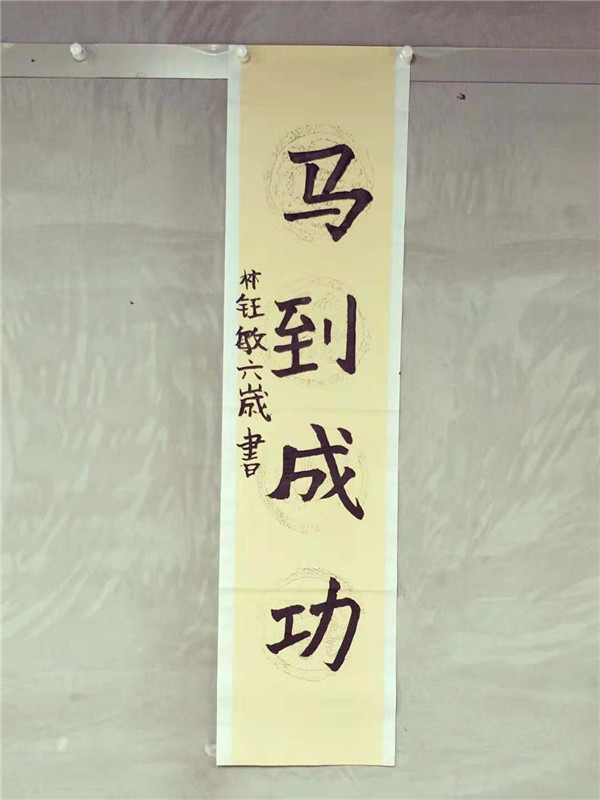 马到成功
林钰敏六歲書